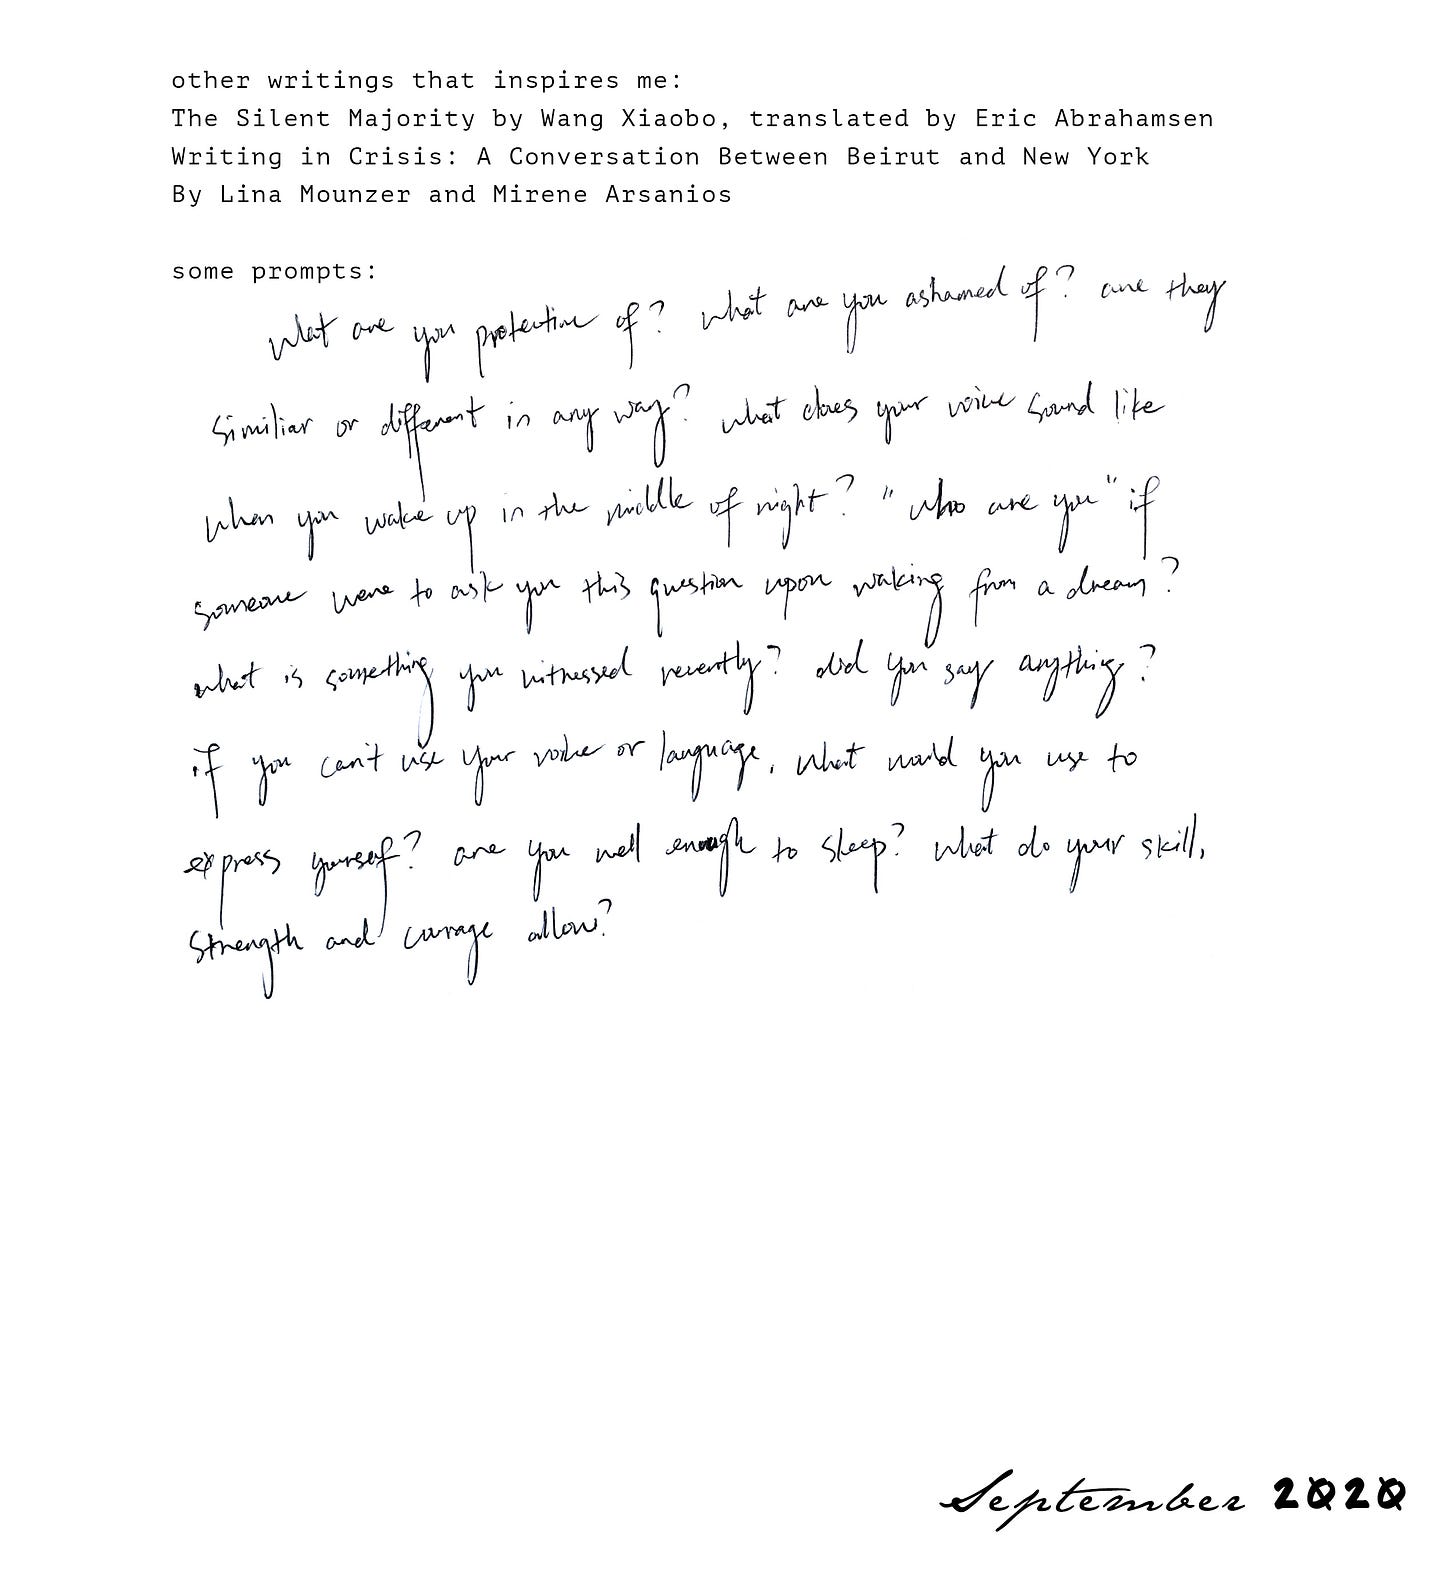 other writings that inspires me:
The Silent Majority by Wang Xiaobo, translated by Eric Abrahamsen
Writing in Crisis: A Conversation Between Beirut and New York
By Lina Mounzer and Mirene Arsanios
some prompts:
what are you protective of? what are you ashamed of? are they
similiar or different in any way? what does your voice sound like
when you wake up in the middle of night? "who are you" if
someone were to ask you this question upon waking from a dream?
what is something you witnessed recently? did you say anything?
if you can't use your voice or language, what would you use to
express yourself? are you well enough to sleep? what do your skill,
strength and courage allow?
September 2020